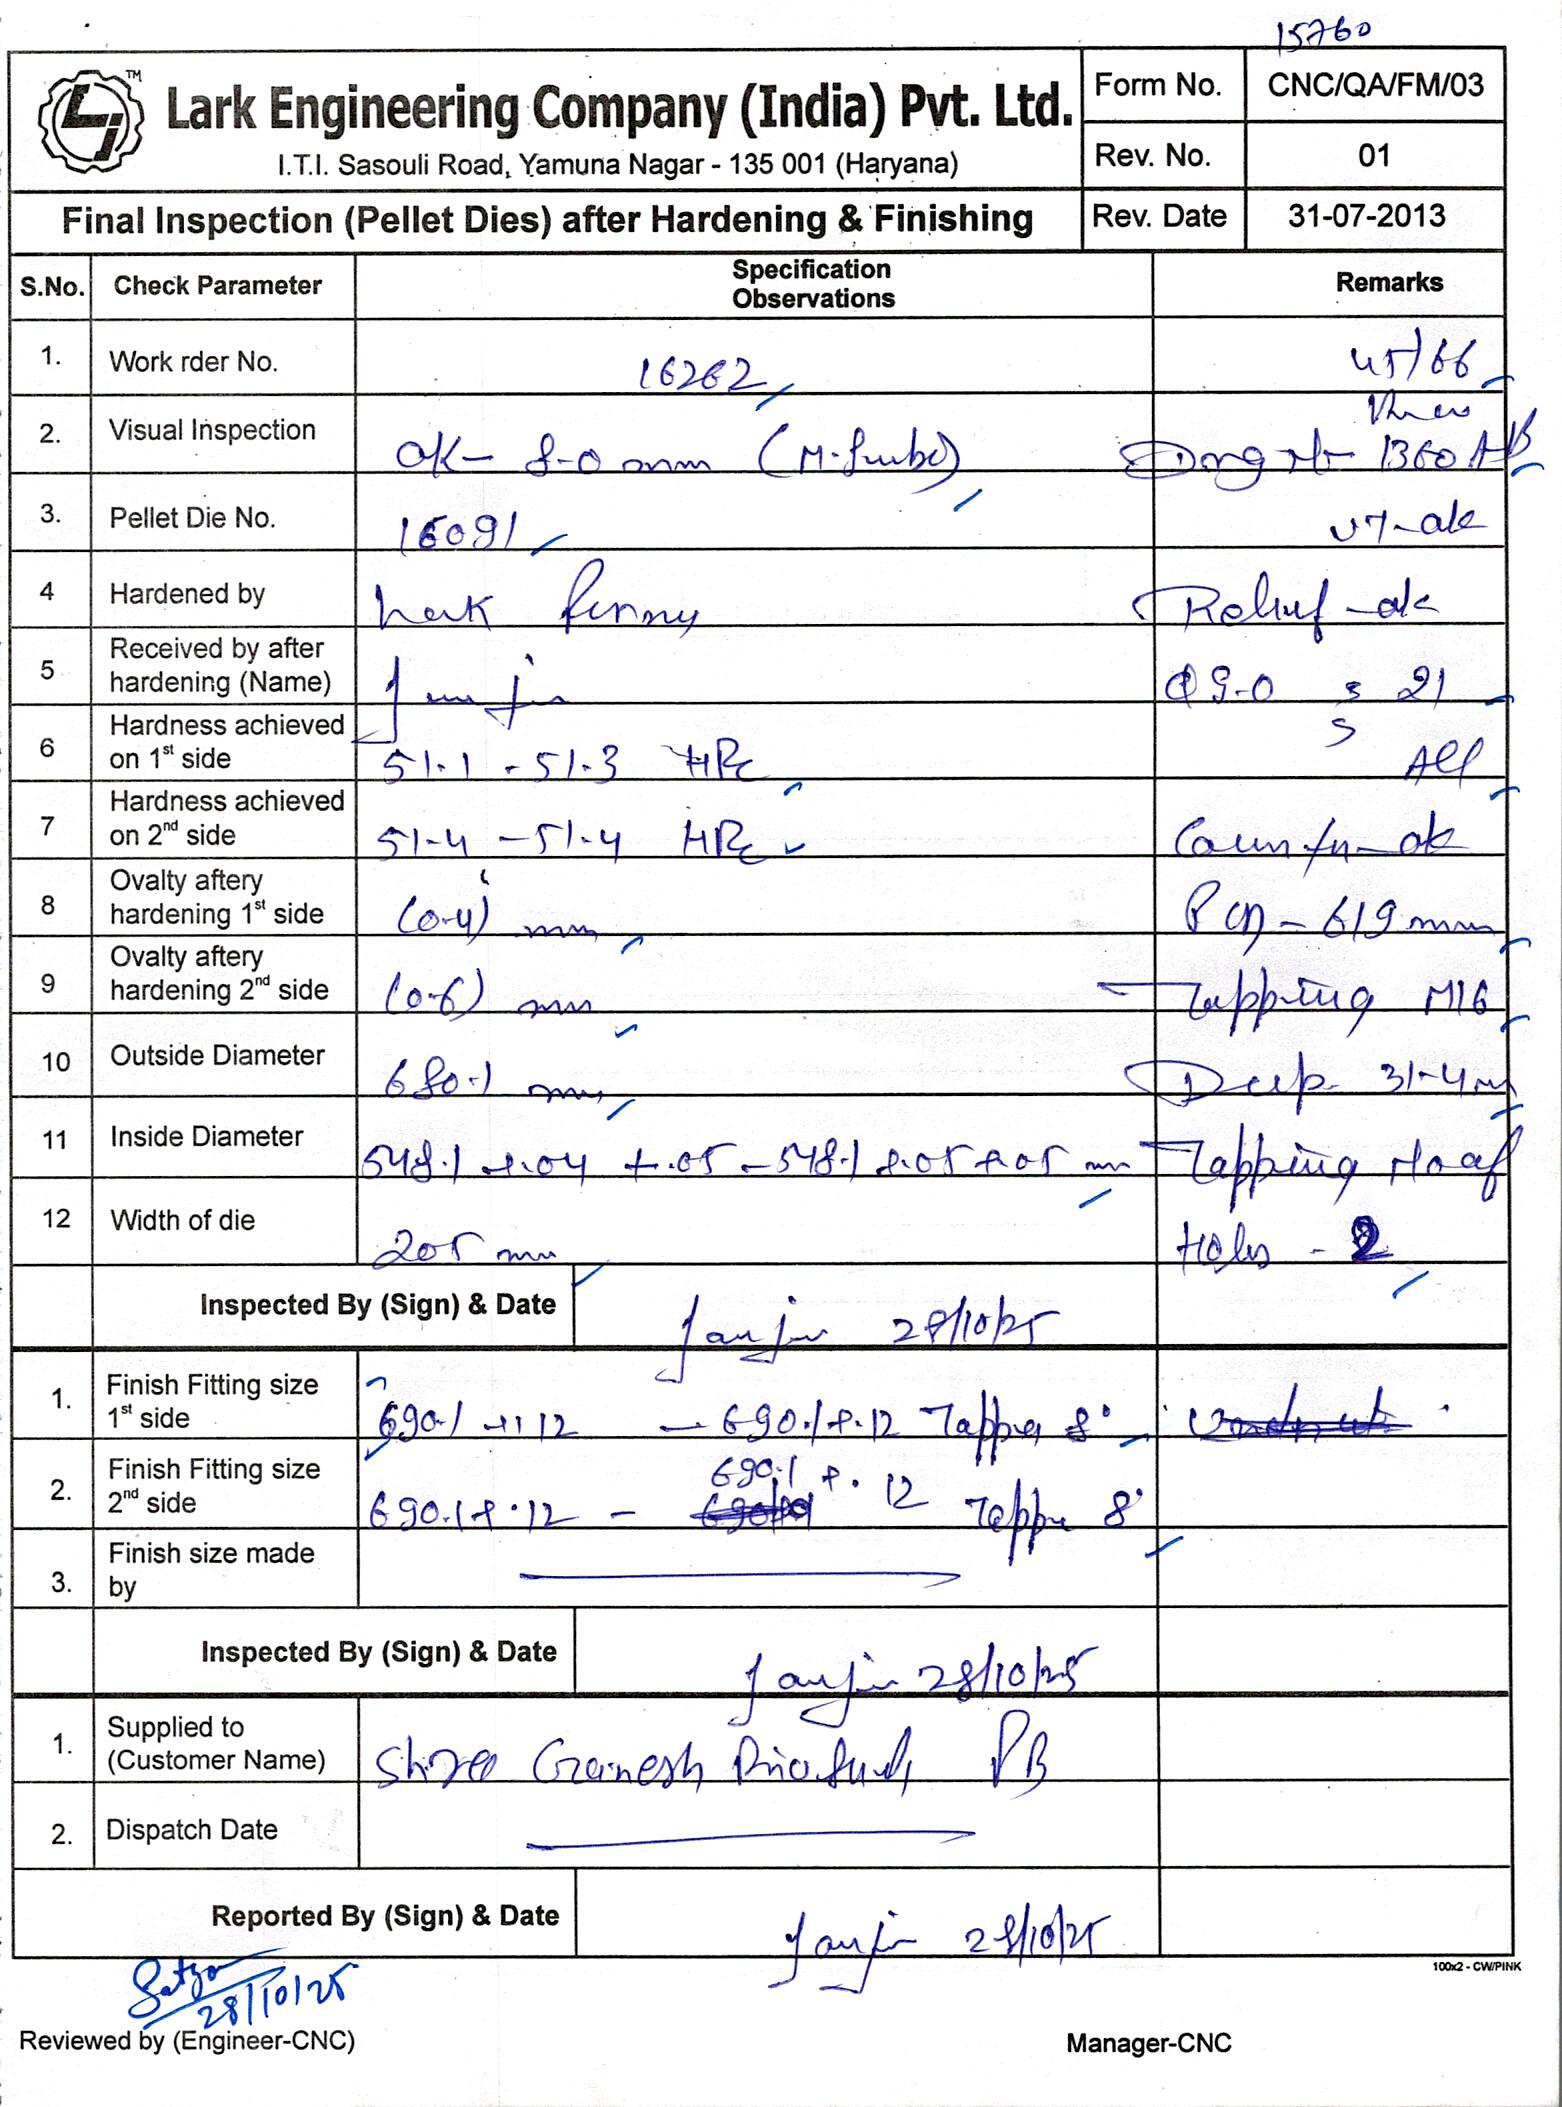 15760
TM
Lark Engineering Company (India) Pvt. Ltd.
I.T.I. Sasouli Road, Yamuna Nagar - 135 001 (Haryana)
Form No. CNC/QA/FM/03
Rev. No. 01
Final Inspection (Pellet Dies) after Hardening & Finishing
Rev. Date 31-07-2013
S.No. Check Parameter Specification Observations Remarks
1. Work rder No. 16262 45/66
2. Visual Inspection OK- 8-0 mm 1360 AB
3. Pellet Die No. 16091 UT-ok
4 Hardened by Relief-ok
5 Received by after hardening (Name) 9-0 21
6 Hardness achieved on 1st side 51.1 - 51.3 HRc All
7 Hardness achieved on 2nd side 51-4 - 51-4 HRc Countr-ok
8 Ovalty aftery hardening 1st side (0-4) mm PCD - 619 mm
9 Ovalty aftery hardening 2nd side (0-6) mm Tapping M16
10 Outside Diameter 680.1 mm Deep 31-4
11 Inside Diameter 548.1 +.04 +.05 - 548.1 +.05 +.05 mm Tapping No of
12 Width of die 205 mm Holes - 2
Inspected By (Sign) & Date 28/10/25
1. Finish Fitting size 1st side 690.1 - 690.1 +.12 Tapper 8°
2. Finish Fitting size 2nd side 690.1 +.12 - 690.1 +.12 Tapper 8°
3. Finish size made by
Inspected By (Sign) & Date 28/10/25
1. Supplied to (Customer Name) Shree Ganesh Biofuels PB
2. Dispatch Date
Reported By (Sign) & Date 28/10/25
100x2 - CW/PINK
28/10/25
Reviewed by (Engineer-CNC) Manager-CNC